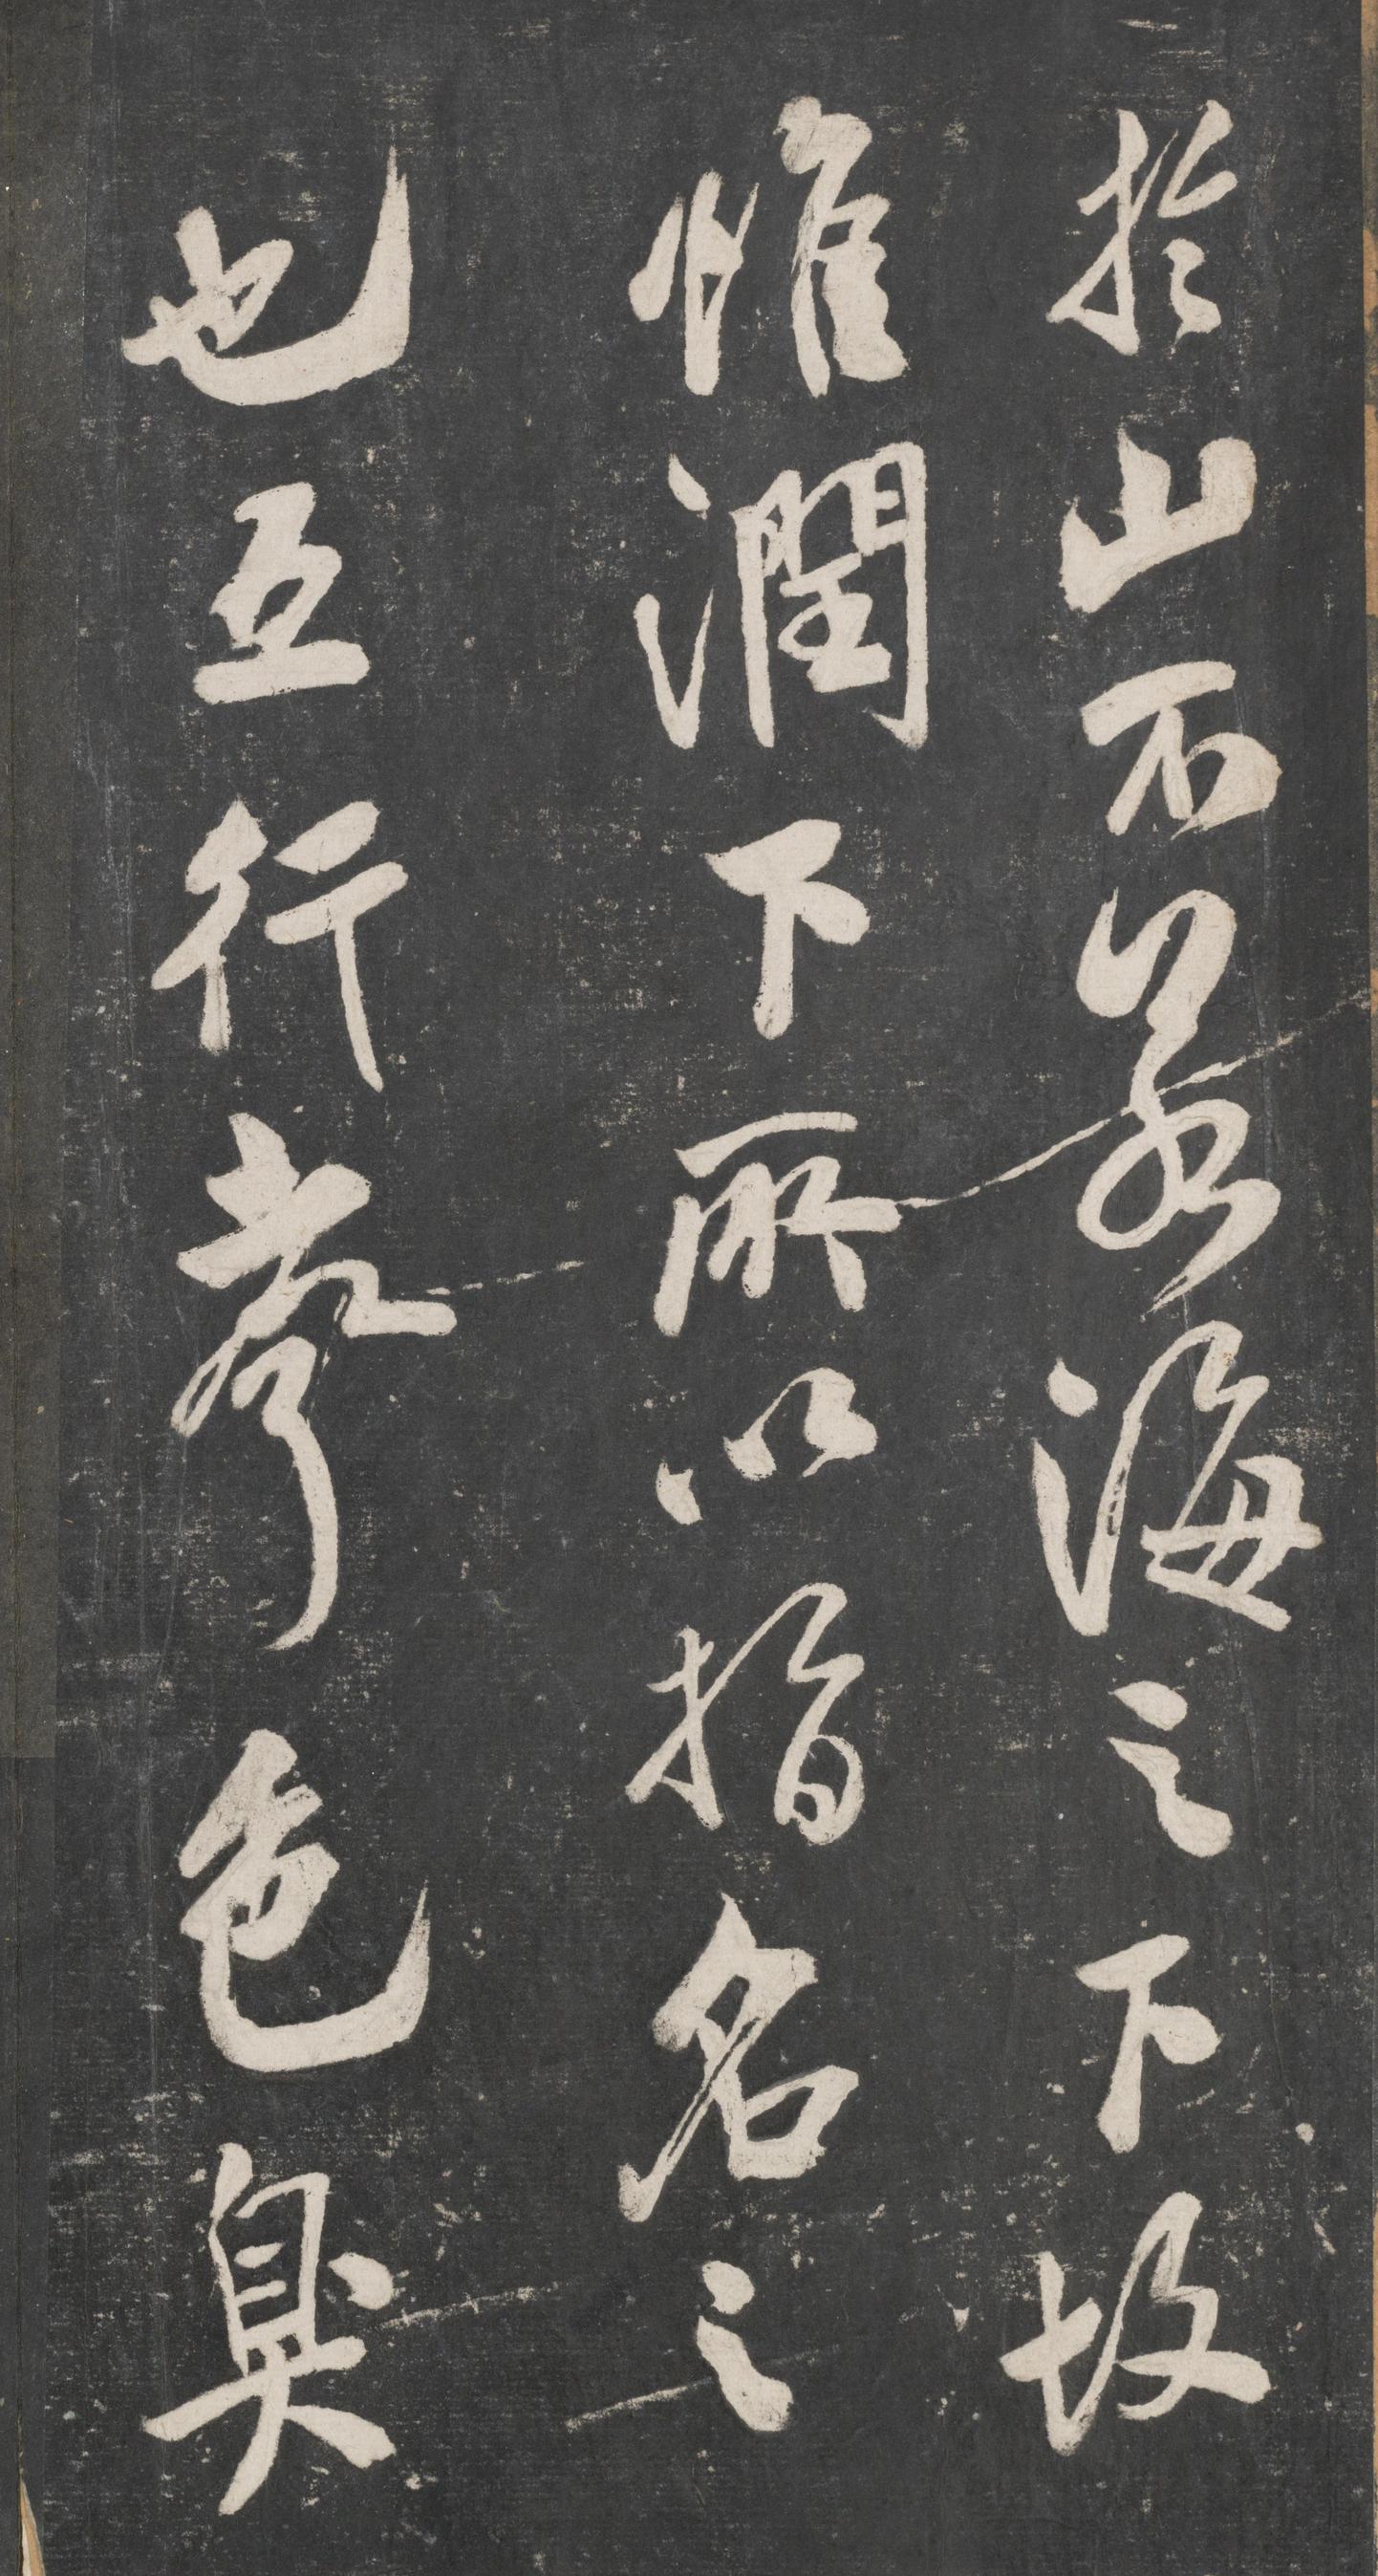 於山不若海之下故
惟潤下所以指名之
也五行考色臭